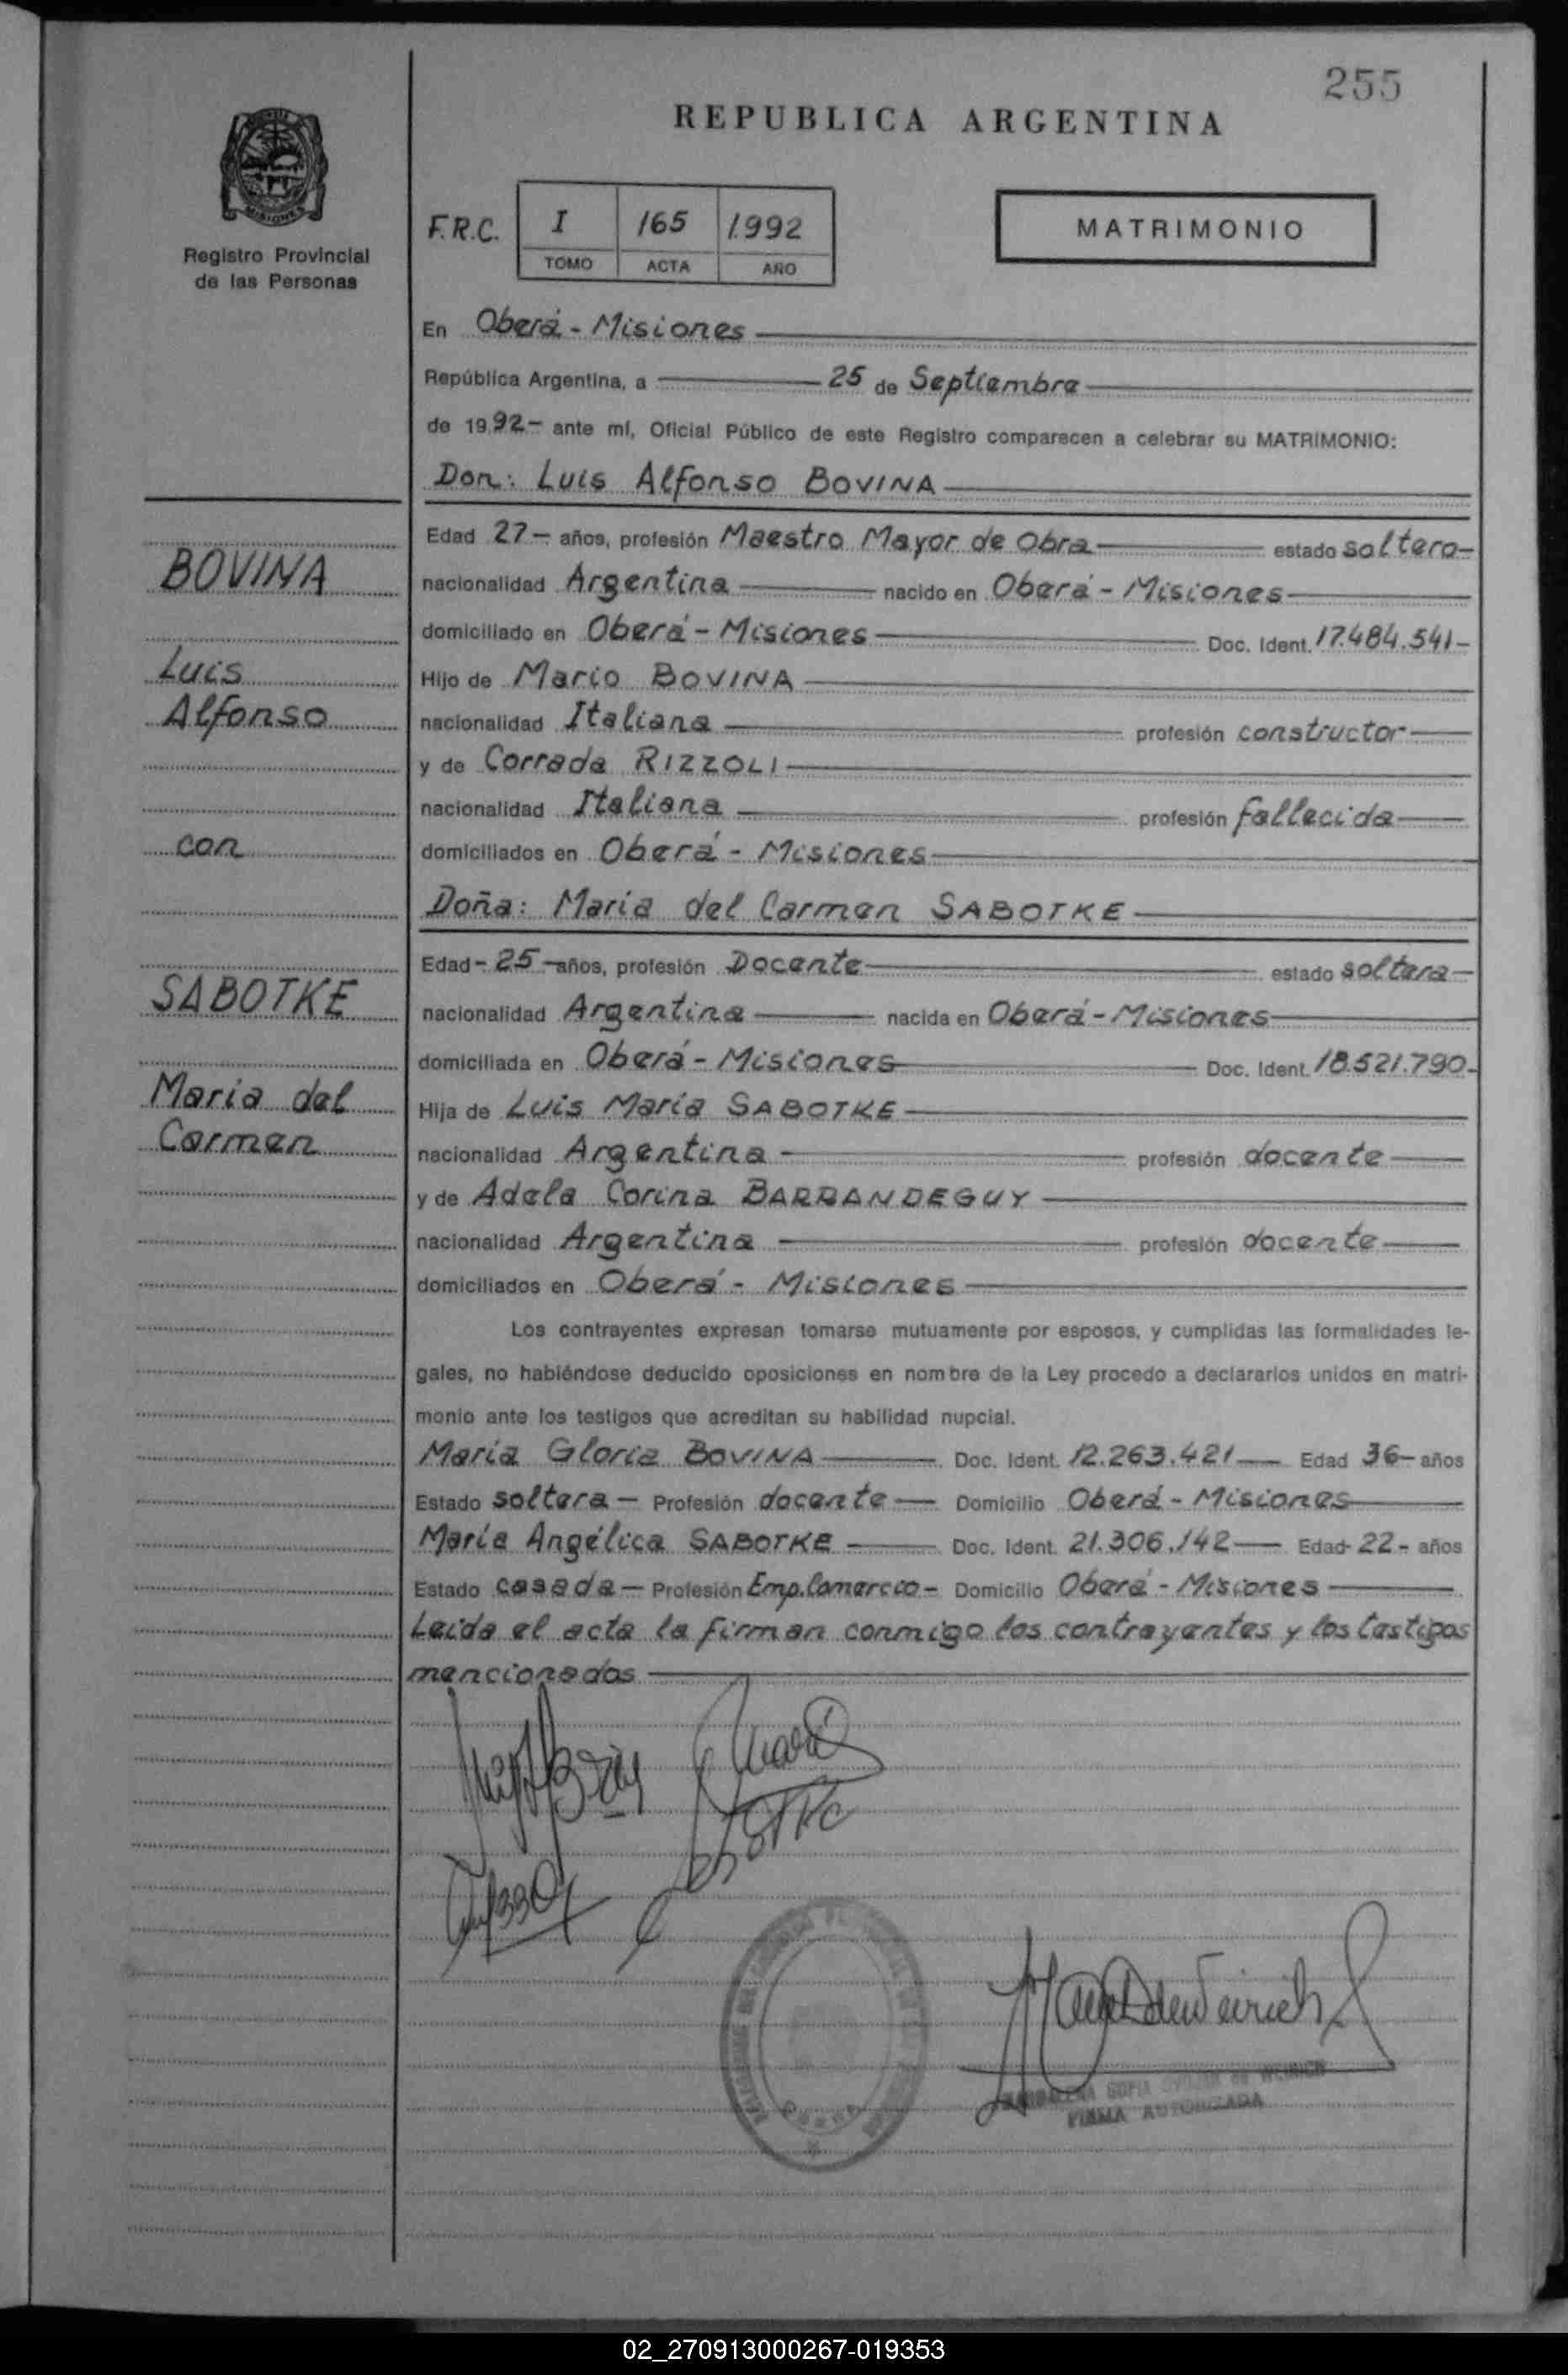 255
REPUBLICA ARGENTINA
MISIONES
Registro Provincial
de las Personas
F.R.C. I 165 1.992
TOMO ACTA AÑO
MATRIMONIO
En Oberá - Misiones
República Argentina, a 25 de Septiembre
de 1992- ante mí, Oficial Público de este Registro comparecen a celebrar su MATRIMONIO:
Don: Luis Alfonso BOVINA
Edad 27- años, profesión Maestro Mayor de Obra estado soltero-
BOVINA
nacionalidad Argentina nacido en Oberá - Misiones
domiciliado en Oberá - Misiones Doc. Ident. 17.484.541-
Luis
Hijo de Mario BOVINA
Alfonso
nacionalidad Italiana profesión constructor
y de Corrada RIZZOLI
nacionalidad Italiana profesión fallecida
con
domiciliados en Oberá - Misiones
Doña: Maria del Carmen SABOTKE
Edad- 25 -años, profesión Docente estado soltera-
SABOTKE
nacionalidad Argentina nacida en Oberá - Misiones
domiciliada en Oberá - Misiones Doc. Ident. 18.521.790-
Maria del
Hija de Luis María SABOTKE
Carmen
nacionalidad Argentina profesión docente
y de Adela Corina BARRANDEGUY
nacionalidad Argentina profesión docente
domiciliados en Oberá - Misiones
Los contrayentes expresan tomarse mutuamente por esposos, y cumplidas las formalidades le-
gales, no habiéndose deducido oposiciones en nombre de la Ley procedo a declararlos unidos en matri-
monio ante los testigos que acreditan su habilidad nupcial.
María Gloria BOVINA Doc. Ident. 12.263.421 Edad 36- años
Estado soltera - Profesión docente Domicilio Oberá - Misiones
María Angélica SABOTKE Doc. Ident. 21.306.142 Edad- 22- años
Estado casada - Profesión Emp. Comercio - Domicilio Oberá - Misiones
Leida el acta la firman conmigo los contrayentes y los testigos
mencionados
FIRMA AUTORIZADA
02_270913000267-019353